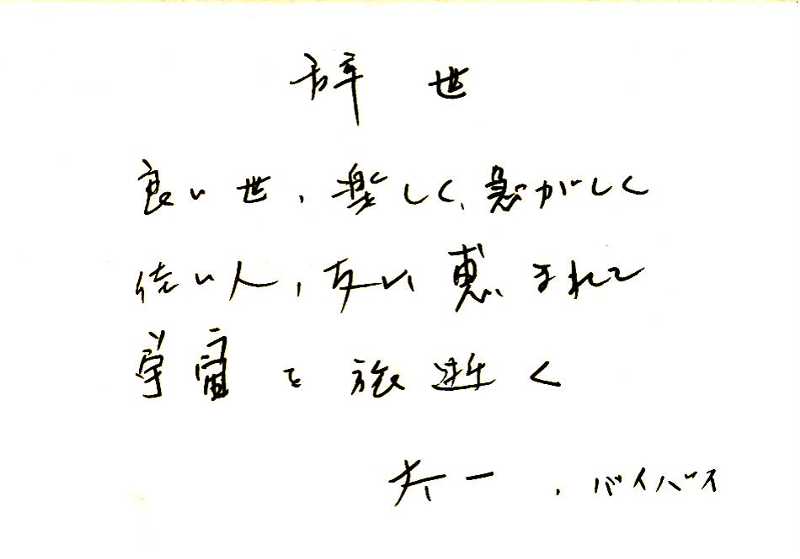 辞世
良い世、楽しく、急がしく
佳い人、友に恵まれて
宇宙を旅逝く
太一、バイバイ